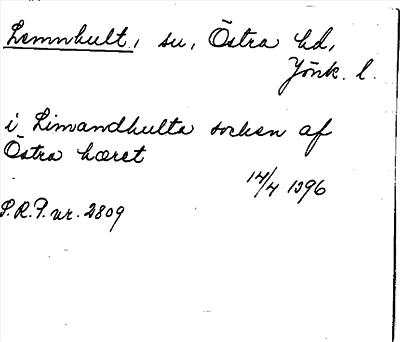 Lemnhult, sn, Östra hd,
Jönk. l.
i Limandhulta socken af
Östra hæret
14/4 1396
S.R.P. nr. 2809